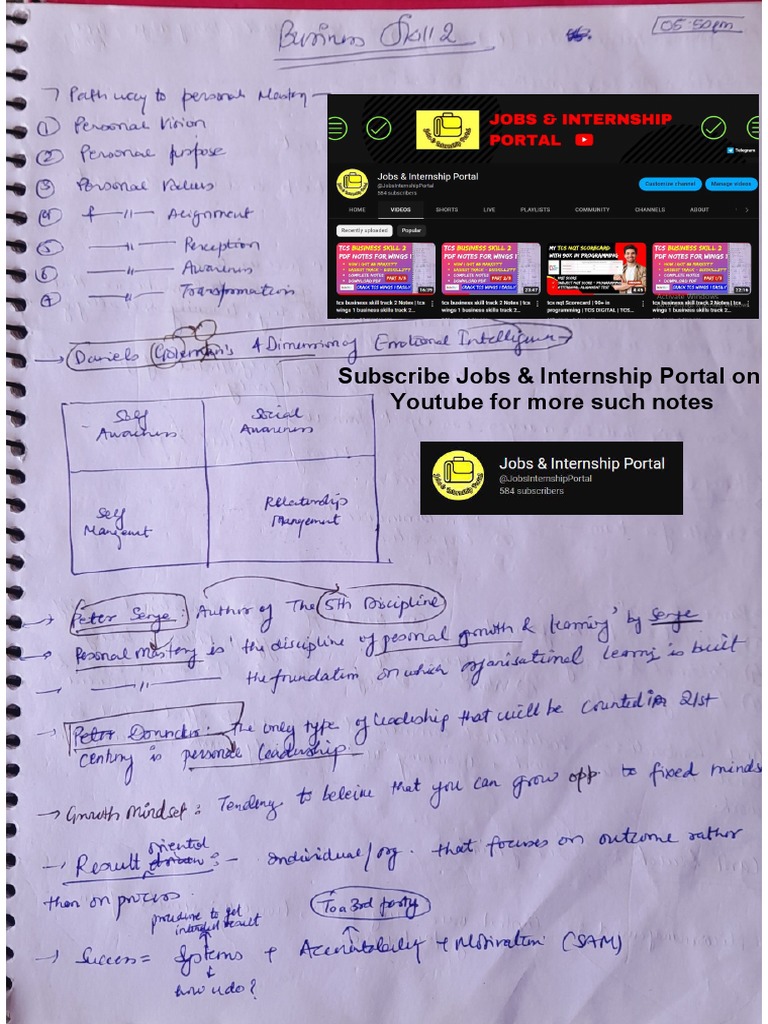 Business Skill 2
05:50pm
→ Path way to personal Mastery -
① Personal Vision
② Personal purpose
③ Personal Values
④ —〃— Alignment
⑤ —〃— Perception
⑥ —〃— Awareness
⑦ —〃— Transformation
JOBS & INTERNSHIP
PORTAL
Telegram
Jobs & Internship Portal
@JobsInternshipPortal
584 subscribers
Customize channel
Manage videos
HOME VIDEOS SHORTS LIVE PLAYLISTS COMMUNITY CHANNELS ABOUT
Recently uploaded Popular
TCS BUSINESS SKILL 2
PDF NOTES FOR WINGS 1
16:39
TCS BUSINESS SKILL 2
PDF NOTES FOR WINGS 1
23:47
MY TCS NQT SCORECARD
WITH 90% IN PROGRAMMING
4:45
TCS BUSINESS SKILL 2
PDF NOTES FOR WINGS 1
22:16
Activate Windows
tcs business skill track 2 Notes | tcs
wings 1 business skills track 2...
tcs business skill track 2 Notes | tcs
wings 1 business skills track 2...
tcs nqt Scorecard | 90+ in
programming | TCS DIGITAL | TCS...
tcs business skill track 2 Notes | tcs
wings 1 business skills track 2...
→ Daniels Goleman's 4 Dimension of Emotional Intelligence
Subscribe Jobs & Internship Portal on
Youtube for more such notes
Jobs & Internship Portal
@JobsInternshipPortal
584 subscribers
Self Awareness
Social Awareness
Self Mangement
Relationship Mangement
→ Peter Senge: Author of The 5th Discipline
→ Personal mastery is 'the discipline of personal growth & learning' by Senge
→ —〃— the foundation on which organisational learning is built
→ Peter : the only type of leadership that will be counted in 21st
century is personal leadership.
→ Growth Mindset: Tendency to beleive that you can grow opp to fixed minds
→ Result oriented :- individual/org. that focuses on outcome rather
then on process.
procedure to get
intended result
To a 3rd party
→ Success = Systems + Accountability + Motivation (SAM)
how u do?